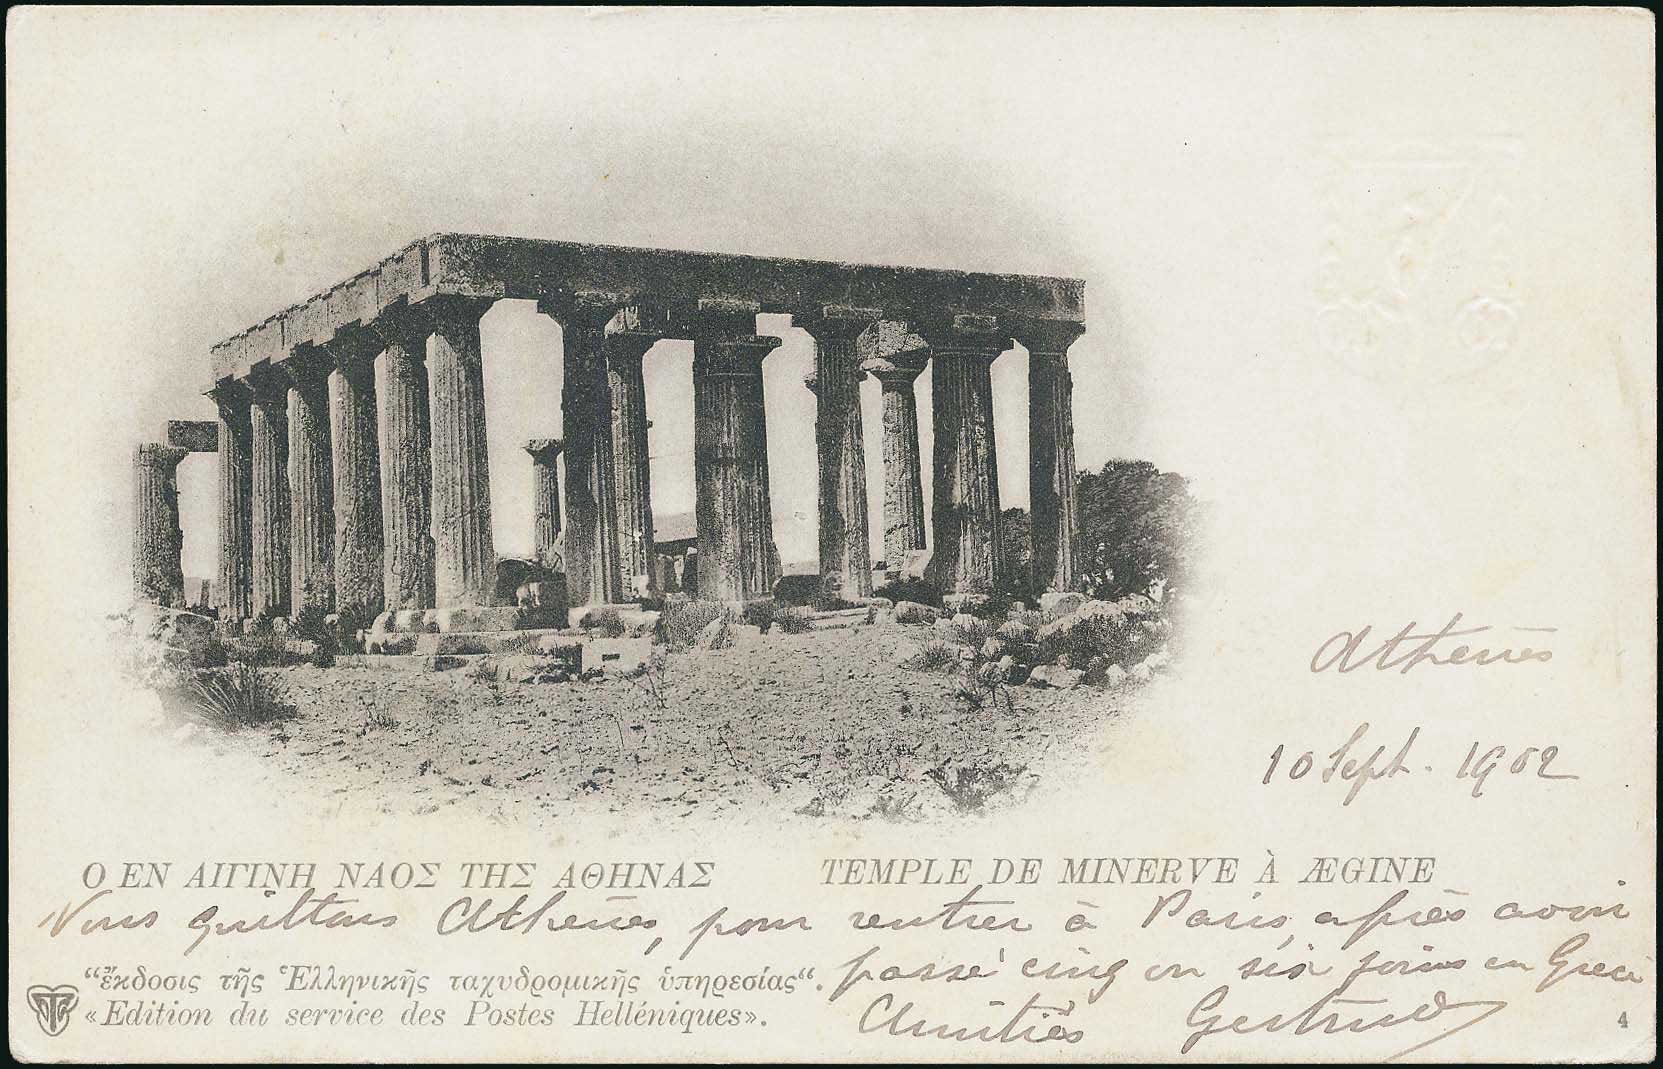 Athènes
10 Sept. 1902
Ο ΕΝ ΑΙΓΙΝΗ ΝΑΟΣ ΤΗΣ ΑΘΗΝΑΣ
TEMPLE DE MINERVE À ÆGINE
Nous quittons Athènes, pour rentrer à Paris, après avoir
passé cinq ou six jours en Grèce
Amitiés Gertrud
“ἔκδοσις τῆς Ἑλληνικῆς ταχυδρομικῆς ὑπηρεσίας“.
«Edition du service des Postes Helléniques».
4